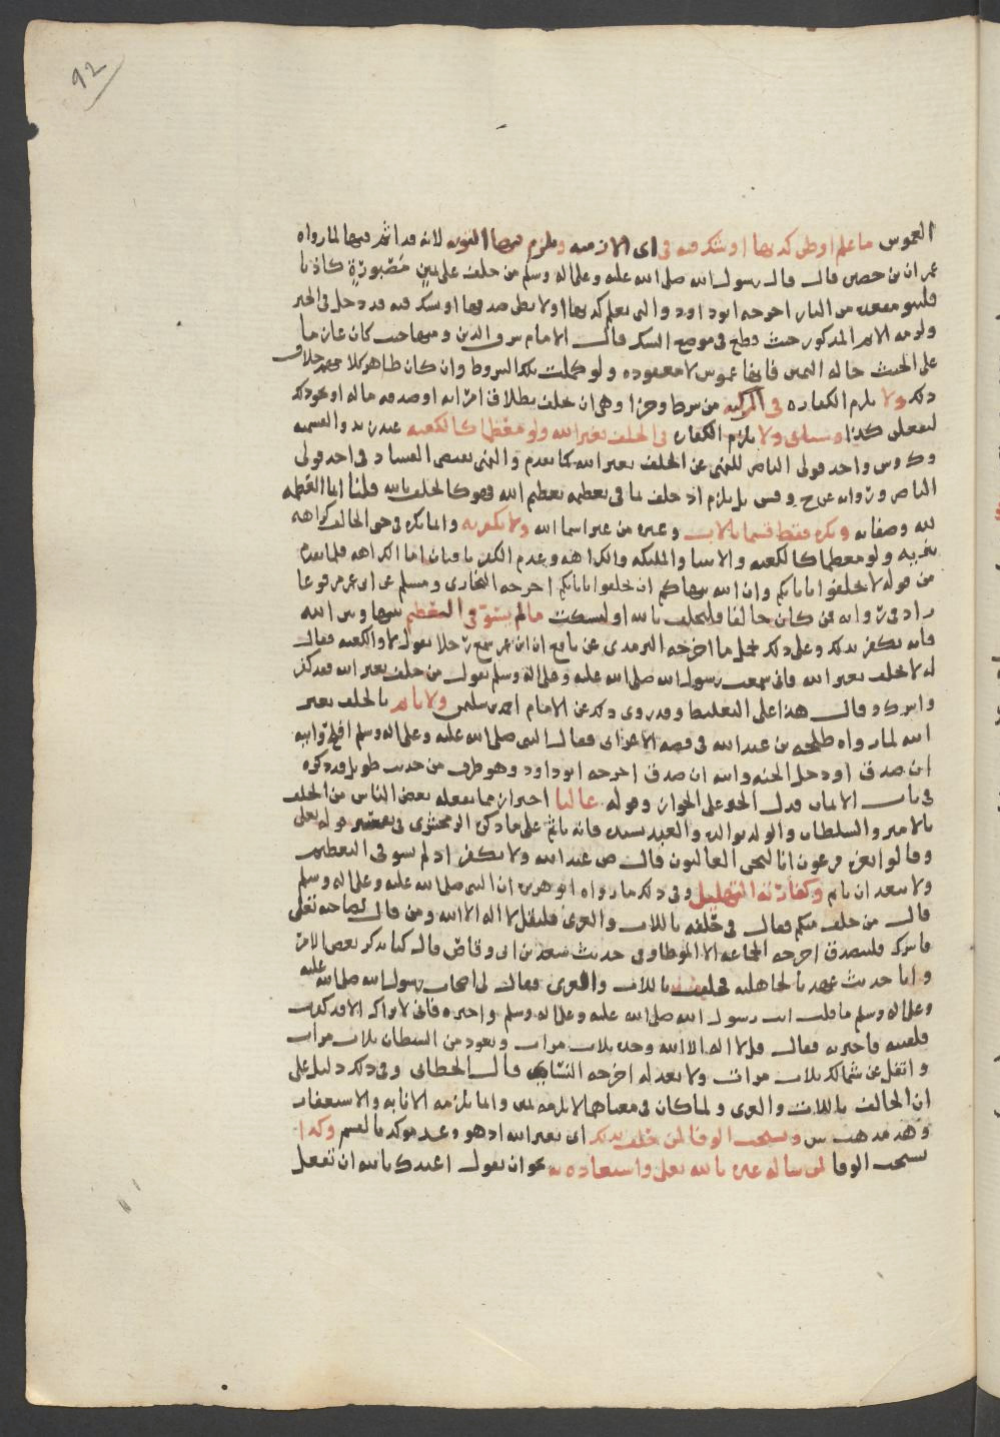 92
الغموس ما علم او ظن كذبها او شك فيه في اى الازمنه ويلزم فيها التوبه لانه قد اثم فيها لما رواه
عمران بن حصين قال قال رسول الله صلى الله عليه وعلى اله وسلم من حلف على يمين مَصْبورَةٍ كاذبا
فليتبوا مقعده من النار اخرجه ابو داود والتى يعلم كذبها او لا يظن صدقها او يشك فيه قد دخل في الخبر
ولزمه الاثم المذكور حيث قطع في موضع الشك قال الامام شرف الدين ومهما حلف كان عازما
على الحنث حاله اليمين فانها غموس لا معقوده ولو كملت تلك الشروط وان كان ظاهر كلامهم خلاف
ذلك ولا يلزم الكفاره في المركبه من شرط وجزا وهى ان يحلف بطلاق امراته او صدقه ماله او نحو ذلك
ليفعلن كذا وسياتى ولا يلزم الكفاره في الحلف بغير الله ولو معظما كالكعبه عند زيد والقسميه
وك وش واحد قولى الناصر للنهى عن الحلف بغير الله كما تقدم والنهى يقتضى الفساد في احد قولى
الناصر وروايه عن ح وقس بل يلزم اذ حلف بما في تعظيمه تعظيم الله فهو كالحلف بالله قلنا انما العظمه
لله وصفاته ويكره فقط قسما بالاب وغيره من غير اسما الله ولا يكفر به وانما يكره في حق الحالف كراهه
تنزيه ولو معظما كالكعبه والانبيا والمليكه والكراهه وعدم الكفر باقيان اما الكراهه فلما تقدم
من قوله لا تحلفوا بابائكم وان الله ينهاكم ان تحلفوا بابائكم اخرجه البخارى ومسلم عن ابن عمر مرفوعا
زاد في روايه فمن كان حالفا فليحلف بالله او ليسكت مالم يستوِ في التعظيم بينها وبين الله
فانه يكفر بذلك وعلى ذلك يحمل ما اخرجه الترمذى عن نافع ان ابن عمر سمع رجلا يقول لا والكعبه فقال
له لا تحلف بغير الله فانى سمعت رسول الله صلى الله عليه وعلى اله وسلم يقول من حلف بغير الله فقد كفر
واشرك وقال هذا على التغليظ وقد روى ذلك عن الامام احمد بن سليمن ولا ياثم بالحلف بغير
الله لما رواه طلحه بن عبد الله في قصه الاعرابى فقال النبى صلى الله عليه وعلى اله وسلم افلح وابيه
ان صدق او دخل الجنه والله ان صدق اخرجه ابو داود وهو طرف من حديث طويل قد ذكره
في باب الايمان فدل الخبر على الجواز وقوله غالبا احتراز مما يفعله بعض الناس من الحلف
بالامير والسلطان والولد بوالده والعبد بسيده فانه ياثم على ما ذكره الزمخشرى في تفسير قوله تعلى
وقالوا بعزه فرعون انا لنحن الغالبون قال ص عبد الله ولا يكفر اذ لم يسو في التعظيم
ولا يبعد ان ياثم وكفارته التهليل وفي ذلك ما رواه ابو هريره ان النبى صلى الله عليه وعلى اله وسلم
قال من حلف منكم فقال في حَلْفه باللات والعزى فليقل لا اله الا الله ومن قال لصاحبه تعلى
اقامرك فليتصدق اخرجه الجماعه الا الموطا وفي حديث سعد بن ابى وقاص قال كنا نذكر بعض الامر
وانا حديث عهد بالجاهليه فحلفت باللات والعزى فقال لى اصحاب رسول الله صلى الله عليه
وعلى اله وسلم ما قلت ائت رسول الله صلى الله عليه وعلى اله وسلم واخبره فانا لا نراك الا قد كفرت
فلقيته فاخبرته فقال قل لا اله الا الله وحده ثلاث مرات وتعوذ من الشيطان ثلاث مرات
واتفل عن شمالك ثلاث مرات ولا تعد له اخرجه النسائى قال الخطابى وفي ذلك دليل على
ان الحالف باللات والعزى ولما كان في معناهما لا يلزمه يمين وانما يلزمه الانابه والاستغفار
وهذ مذهب ش ويستحب الوفا لمن حلف بذلك اى بغير الله اذ هو وعد موكد بالقسم وكذا
يستحب الوفا لمن ساله غيره بالله تعلى واستعاذه به نحو ان يقول اعيذك بالله ان تفعل